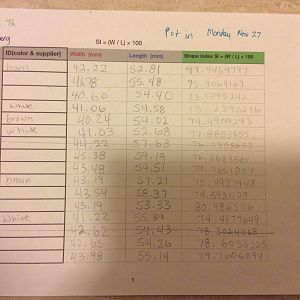 Put in Monday Nov 27
SI = (W / L) × 100
ID(color & supplier) Width (mm) Length (mm) Shape index SI = (W/L) × 100
brown 42.22 52.81 79.9469797
55.48
40.60 54.40
white 41.06 54.58
brown 40.24 54.02 74.4909293
white 41.03 52.68 77.8853455
44.22 57.63
45.38 59.19
43.48 54.51
brown 43.19 57.21 75.4937948
43.54 58.37 74.5931129
43.19 53.33 80.9863116
White 41.22 55.39 74.4177649
42.62 54.43 78.3024068
42.65 54.26 78.6030225
43.98 55.14 79.7606094
1